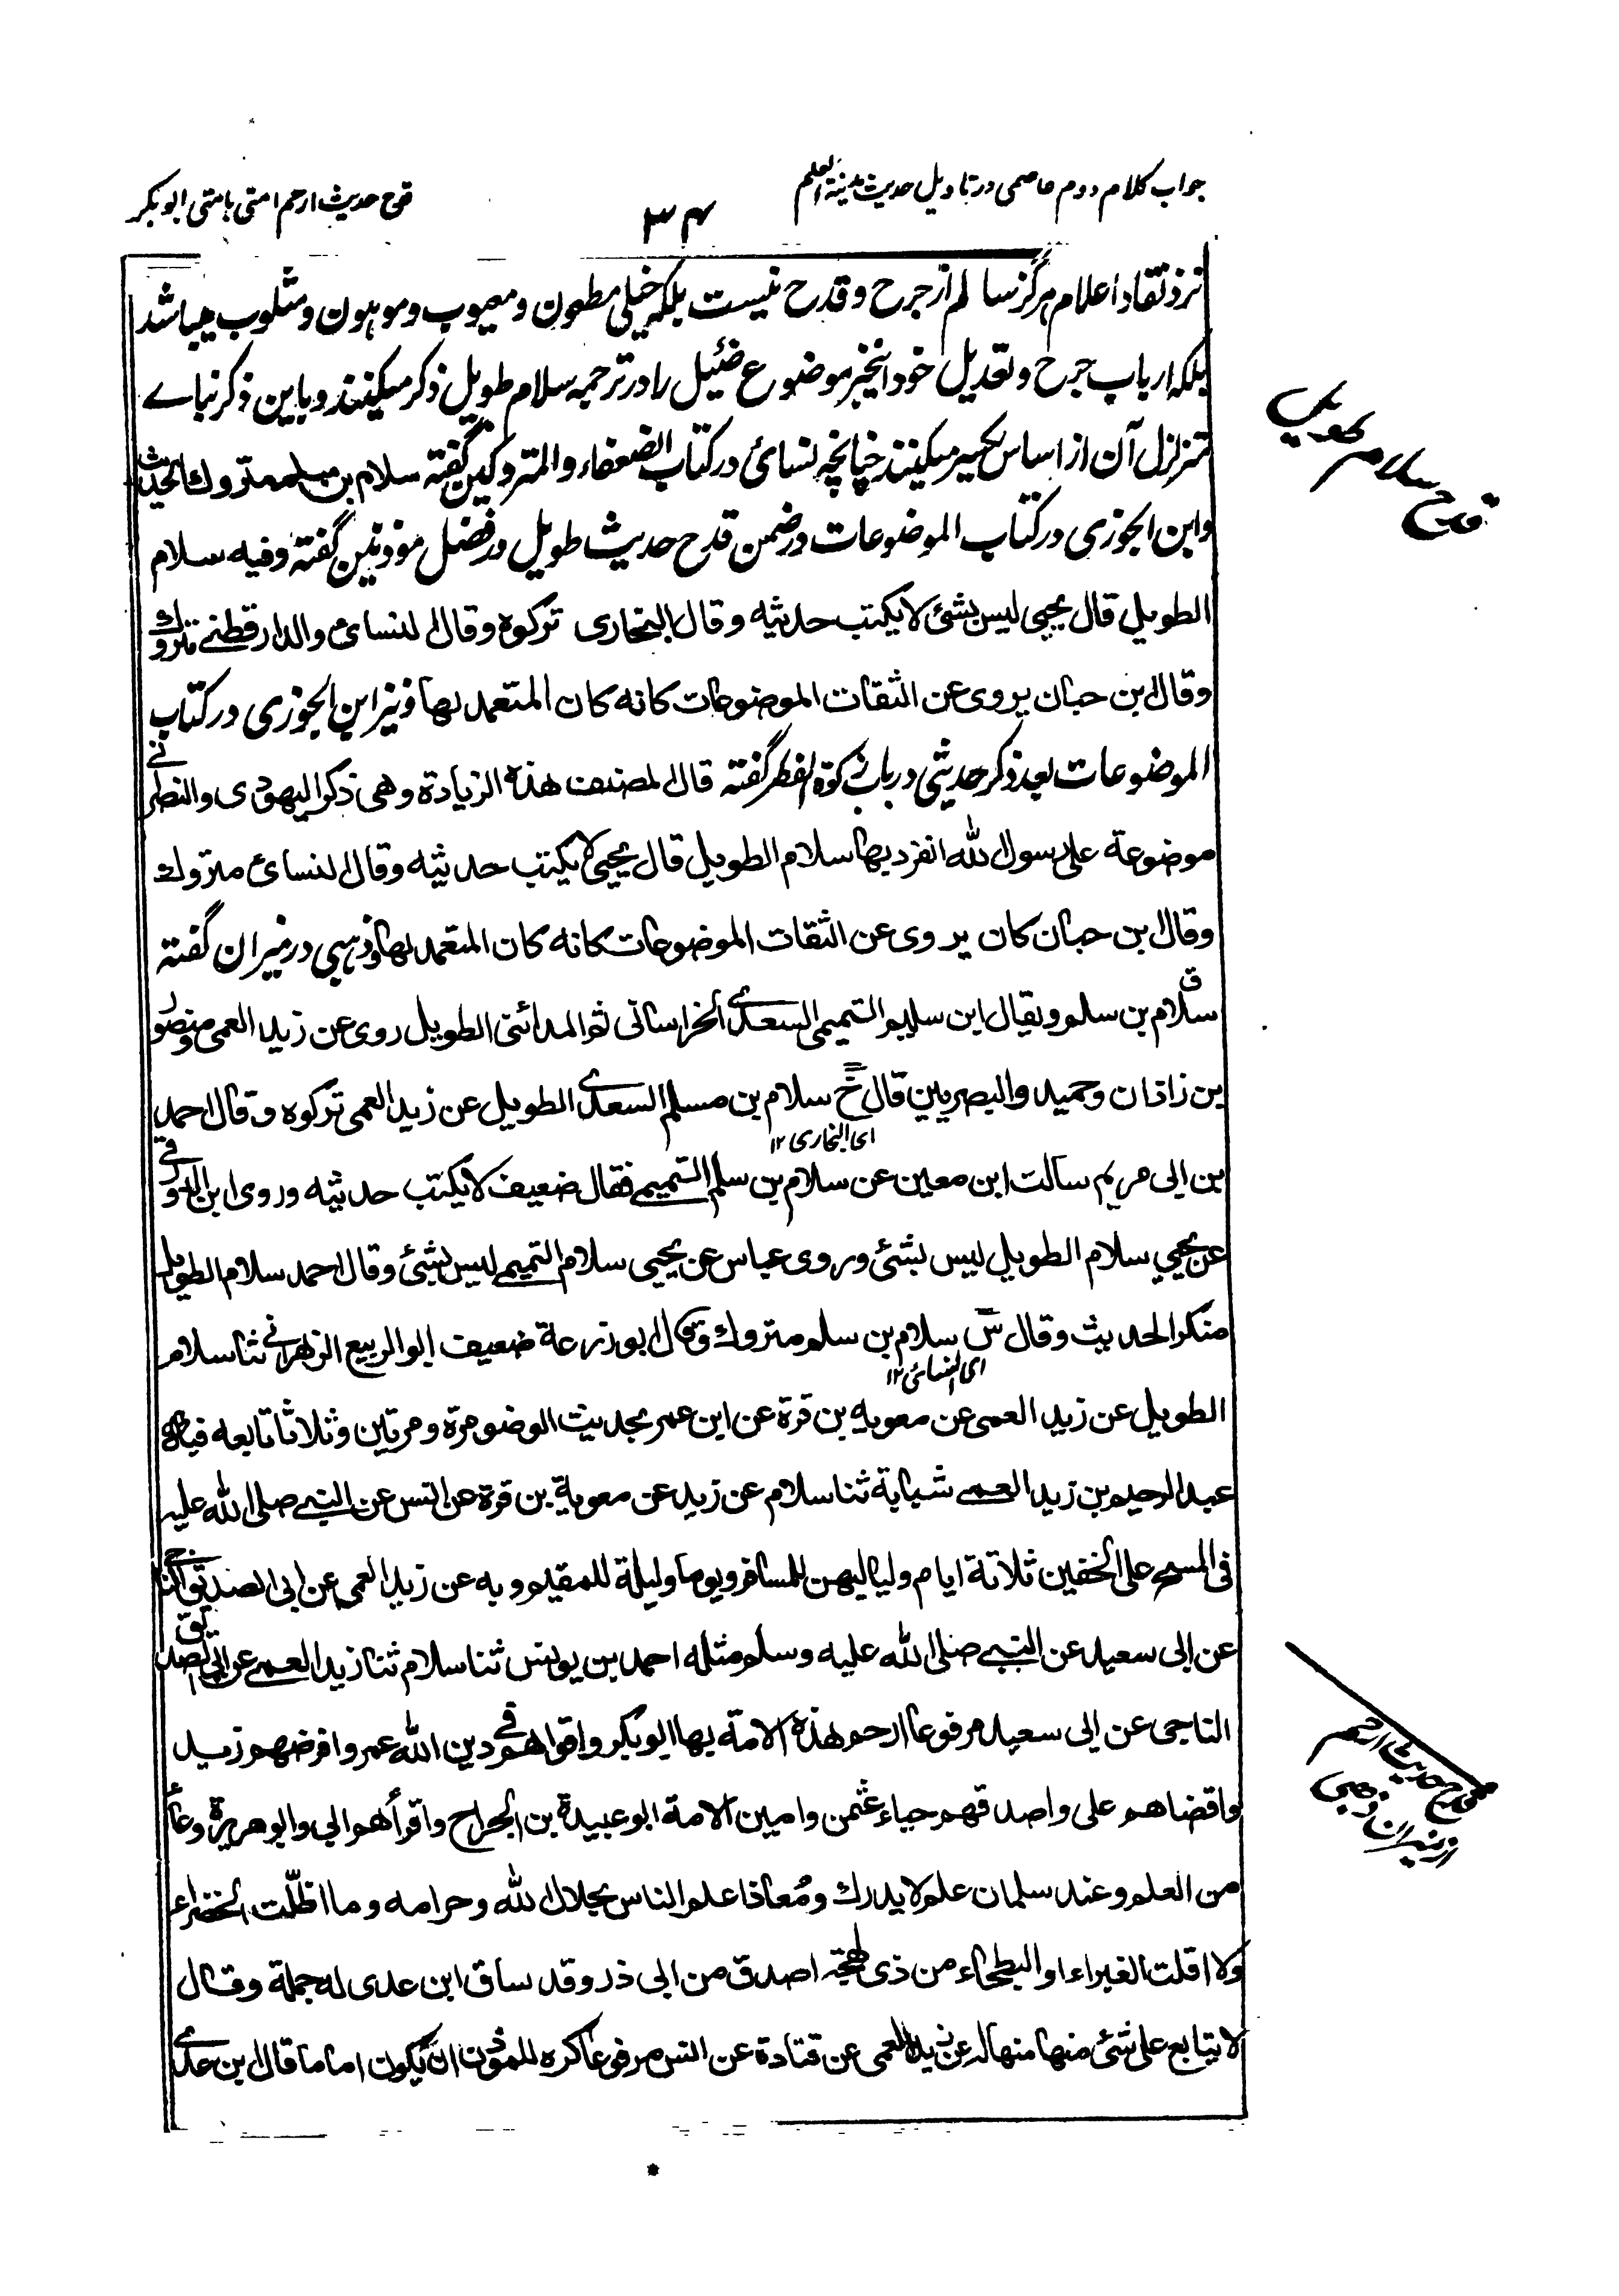 جواب کلام دوم عاصمی در تاویل حدیث مدینة العلم
۳۴
قدح حدیث ارحم امتی بامتی ابوبکر
نزد نقاد اعلام هرگز سالم از جرح و قدح نیست بلکه خیلی مطعون و معیوب و موهون و مثلوب میباشد
بلکه ارباب جرح و تعدیل خود اینخبر موضوع ضئیل را در ترجمه سلام طویل ذکر میکنند و باین ذکر بنای
متزلزل آن از اساس بکسیر میکنند چنانچه نسائی در کتاب الضعفاء والمتروکین گفته سلام بن سلم متروك الحدیث
و ابن الجوزی در کتاب الموضوعات در ضمن قدح حدیث طویل در فضل موذنین گفته وفیه سلام
الطویل قال یحیی لیس بشئ لا یکتب حدیثه وقال البخاری ترکوه وقال النسائی والدارقطنی متروك
وقال ابن حبان یروی عن الثقات الموضوعات کانه کان المتعمد لها و نیز ابن الجوزی در کتاب
الموضوعات بعد ذکر حدیثی در باب زکوة الفطر گفته قال المصنف هذه الزیادة وهی ذکر الیهودی والنصرانی
موضوعة علی رسول الله انفرد بها سلام الطویل قال یحیی لا یکتب حدیثه وقال النسائی متروك
وقال ابن حبان کان یروی عن الثقات الموضوعات کانه کان المتعمد لها و ذهبی در میزان گفته
سلام بن سلم ویقال ابن سلیم التمیمی السعدی الخراسانی ثم المدائنی الطویل روی عن زید العمی ومنصور
ق
بن زاذان وحمید والبصریین قال خ سلام بن مسلم السعدی الطویل عن زید العمی ترکوه وقال احمد
ای البخاری ۱۲
بن ابی مریم سالت ابن معین عن سلام بن سلم التمیمی فقال ضعیف لا یکتب حدیثه وروی ابن الدورقی
عن یحیی سلام الطویل لیس بشئ وروی عباس عن یحیی سلام التمیمی لیس بشئ وقال احمد سلام الطویل
منکر الحدیث وقال س سلام بن سلم متروك وقال ابو زرعة ضعیف ابو الربیع الزهرانی ثنا سلام
ای النسائی ۱۲
الطویل عن زید العمی عن معویه بن قرة عن ابن عمر بحدیث الوضو مرة ومرتین وثلاثا تابعه فیاه
عبد الرحیم بن زید العمی شبابة ثنا سلام عن زید عن معویة بن قرة عن انس عن النبی صلی الله علیه
فی المسح علی الخفین ثلاثة ایام ولیالیهن للمسافر ویوما ولیلة للمقیم وبه عن زید العمی عن ابی الصدیق الناجی
عن ابی سعید عن النبی صلی الله علیه وسلم مثله احمد بن یونس ثنا سلام ثنا زید العمی عن ابی الصدیق
الناجی عن ابی سعید مرفوعا ارحم هذه الامة بها ابوبکر واقواهم فی دین الله عمر وافرضهم زید
واقضاهم علی واصدقهم حیاء عثمن وامین الامة ابو عبیدة بن الجراح واقرأهم ابی وابو هریرة وعاء
من العلم وعند سلمان علم لا یدرك ومُعاذ اعلم الناس بحلال الله وحرامه وما اظلّت الخضراء
ولا اقلت الغبراء او البطحاء من ذی لهجة اصدق من ابی ذر وقد ساق ابن عدی له جملة وقال
لا یتابع علی شئ منها منها له عن زید العمی عن قتادة عن انس مرفوعا کره للموذن ان یکون اماما قال ابن عدی
قدح سلام طویل
قدح حدیث ارحم
از میزان ذهبی